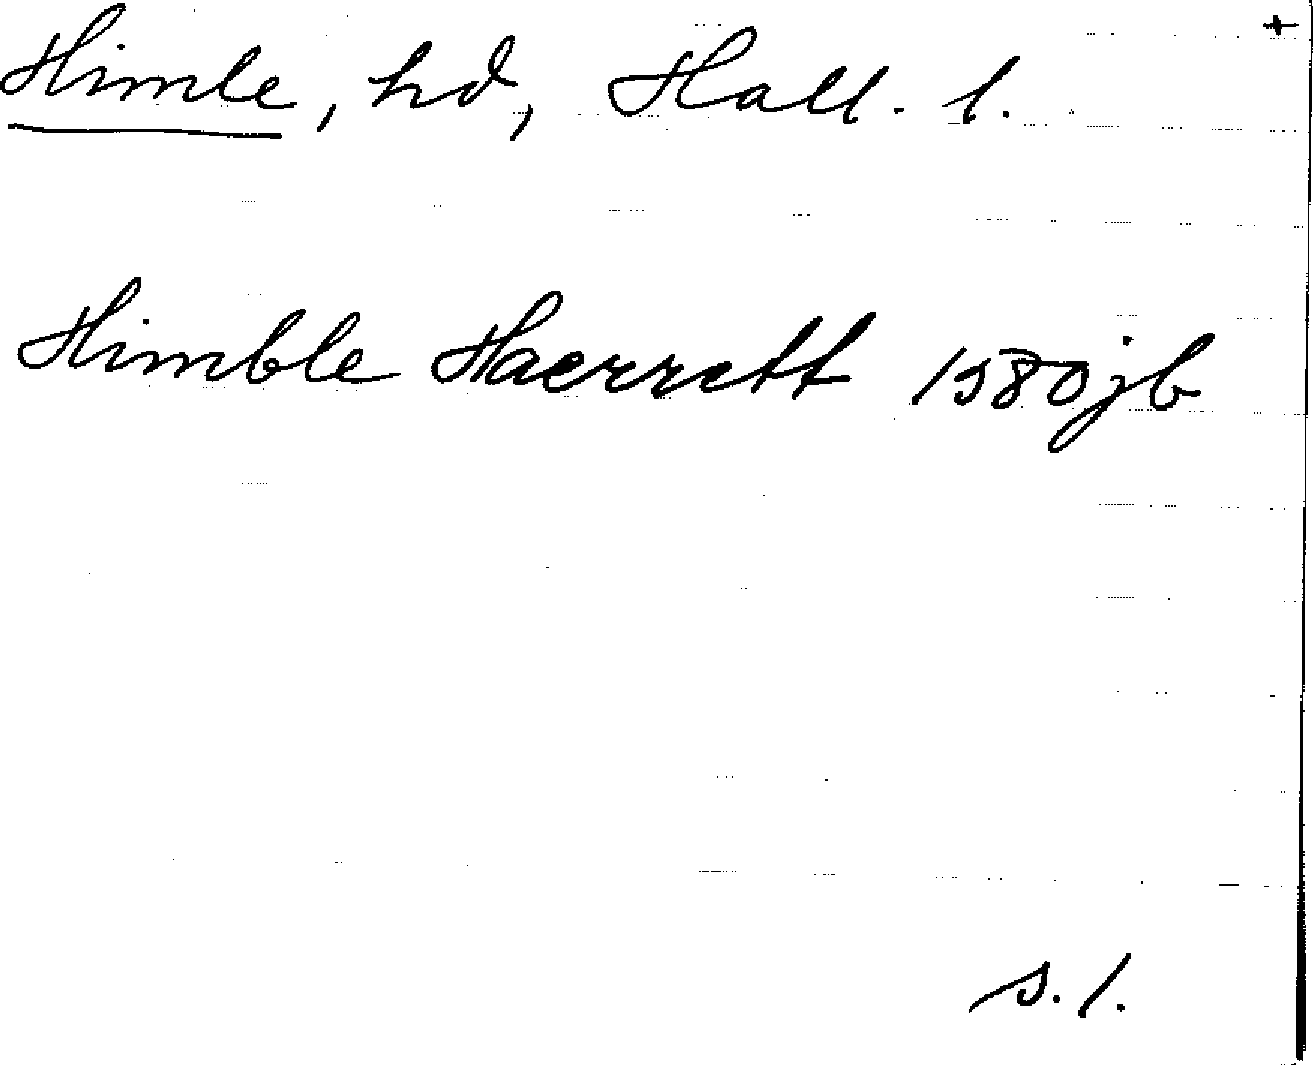 +
Himle, hd, Hall. l.
Himble Haerrett 1580 jb
s. 1.